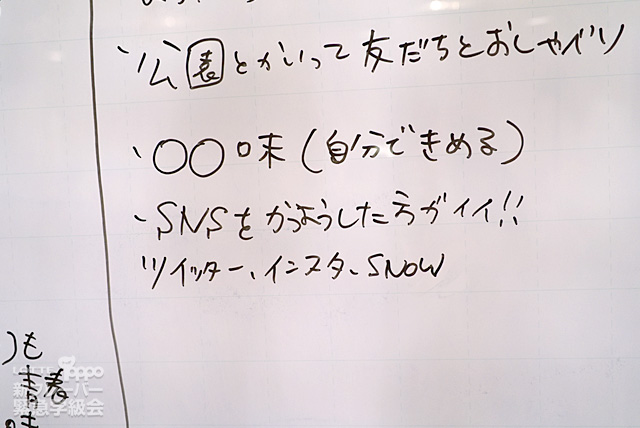 、公園とかいって友だちとおしゃべり
、〇〇味（自分できめる）
、SNSをかつようした方がイイ!!
ツイッター、インスタ、SNOW
も
青春
新フレーバー
緊急学級会